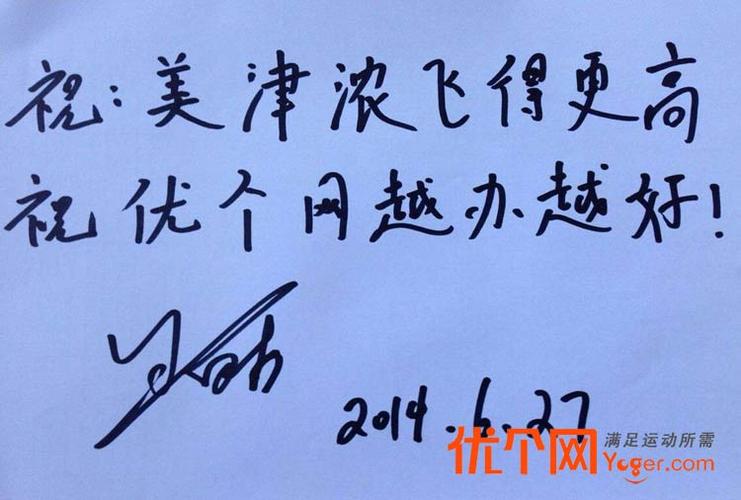 祝:美津浓飞得更高
祝优个网越办越好!
2014.6.27
优个网 满足运动所需
Yoger.com